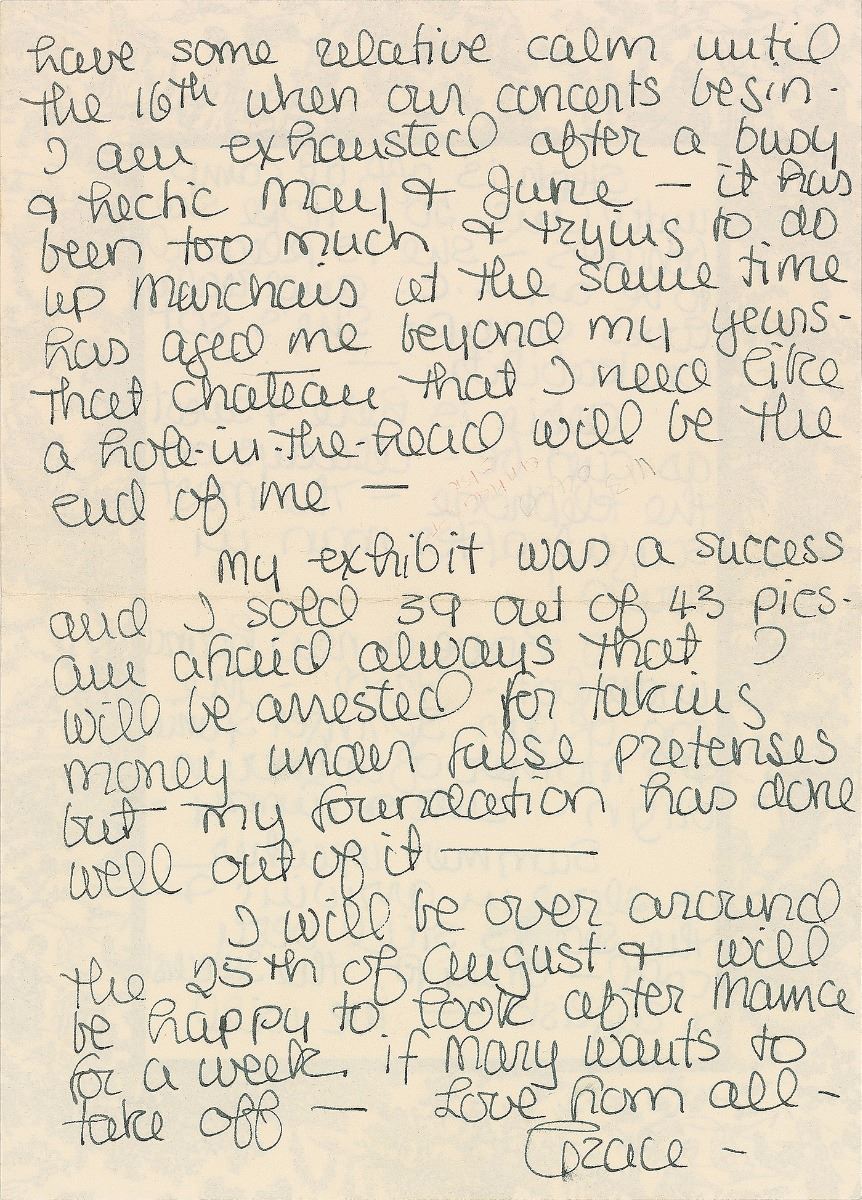 have some relative calm until
the 16th when our concerts begin.
I am exhausted after a busy
& hectic May & June — it has
been too much & trying to do
up Marchais at the same time
has aged me beyond my years-
that chateau that I need like
a hole-in-the-head will be the
end of me —
My exhibit was a success
and I sold 39 out of 43 pics-
am afraid always that I
will be arrested for taking
money under false pretenses
but my foundation has done
well out of it —
I will be over around
the 25th of August & will
be happy to look after Mama
for a week, if Mary wants to
take off — Love from all -
Grace -